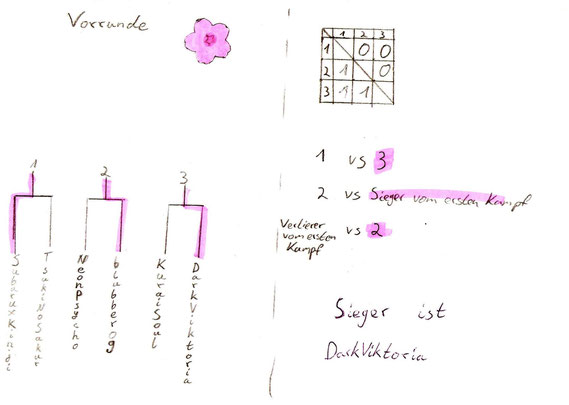 Vorrunde
1 2 3
TsukiNoSakur
NeonPsycho
blubberog
KuraiSoul
DarkViktoria
1 2 3
1 0 0
2 1 0
3 1 1
1 vs 3
2 vs Sieger vom ersten Kampf
Verlierer vom ersten Kampf vs 2
Sieger ist
DarkViktoria